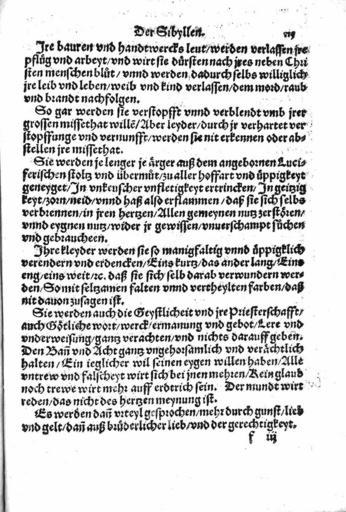 Der Sibyllen.
Jre bauren vnd handtwercks leut/werden verlassen jre
pflüg vnd arbeyt/vnd wirt sie dürsten nach jres neben Chri
sten menschen blůt/vnnd werden dadurch selbs williglich
jre leib vnd leben/weib vnd kind verlassen/dem mord/raub
vnd brandt nachfolgen.
So gar werden sie verstopfft vnnd verblendt vmb jrer
grossen missethat willē/Aber leyder/durch jr verhartet ver
stopffunge vnd vernunfft/werden sie nit erkennen oder ab
stellen jre missethat.
Sie werden je lenger je ärger auß dem angebornen Luci-
ferischen stoltz vnd übermůt/zu aller hoffart vnd üppigkeyt
geneyget/Jn vnkeuscher vnfletigkeyt ertrincken/Jn geitzig
keyt/zorn/neid/vnnd haß also erflammen/daß sie sich selbs
verbrennen/in jren hertzen/Allen gemeynen nutz zerstören/
vnnd eygnen nutz/wider jr gewissen/vnuerschampt sůchen
vnd gebraucheen.
Jhre kleyder werden sie so manigfaltig vnnd üppigklich
verendern vnd erdencken/Eins kurtz/das ander lang/Eins
eng/eins weit/rc. daß sie sich selb darab verwundern wer-
den/So mit seltzamen falten vnnd vertheylten farben/daß
nit dauon zusagen ist.
Sie werden auch die Geystlicheit vnd jre Priesterschafft/
auch Götliche wort/werck/ermanung vnd gebot/Lere vnd
vnderweisung/gantz verachten/vnd nichts darauff geben.
Den Bañ vnd Acht gantz vngehorsamlich vnd verächtlich
halten/Ein jeglicher wil seinen eygen willen haben/Alle
vntrew vnd falscheyt wirt sich bei jnen mehren/Kein glaub
noch trewe wirt mehr auff erdtrich sein. Der mundt wirt
reden/das nicht des hertzen meynung ist.
Es werden dañ vrteyl gesprochen/mehr durch gunst/lieb
vnd gelt/dañ auß brüderlicher lieb/vnd der gerechtigkeyt.
f iij